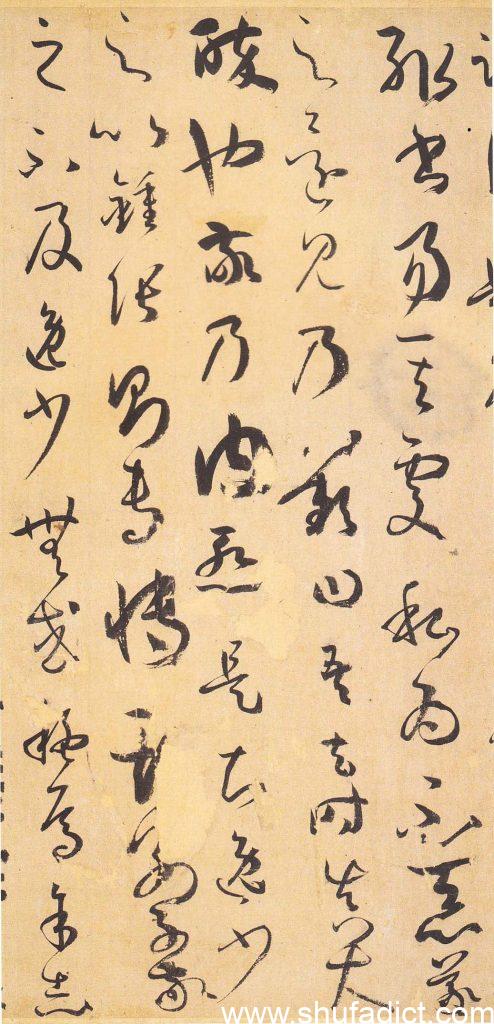 輙書易其處私為不惡羲
之還見乃歎曰吾去時真大
醉也敬乃內慙是知逸少
之比鍾張則專博斯別子敬
之不及逸少無或疑焉余志
www.shufadict.com